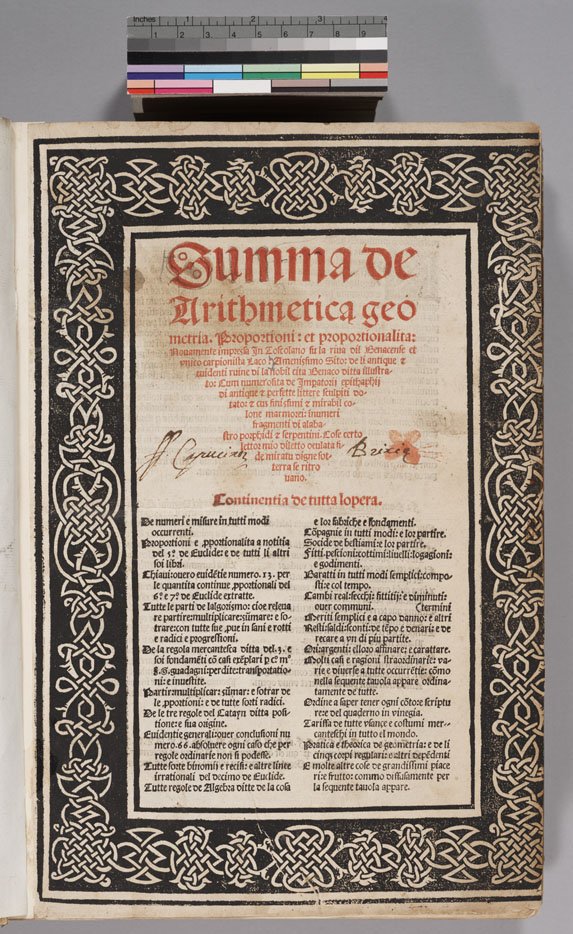 Inches 1 2 3 4
1 2 3 4 5 6 7 8 9
Summa de
Arithmetica geo
metria. Proportioni: et proportionalita:
Nouamente impressa In Toscolano su la riua dil Benacense et
vnico carpionista Laco: Amenissimo Sito: de li antique &
euidenti ruine di la nobil cita Benaco ditta illustra-
to: Cum numerosita de Impatorii epithaphij
di antique & perfette littere sculpiti do-
tato: & cũs finissimi & mirabil co-
lone marmorei: inumeri
fragmenti di alaba-
stro porphidi & serpentini. Cose certo
lettor mio diletto oculata fi-
de miratu digne sot-
terra se ritro
uano.
Capucinor
Brixię
Continentia de tutta lopera.
De numeri e misure in tutti modi
occurrenti.
Proportioni e ꝓportionalita a notitia
del 5º de Euclide: e de tutti li altri
soi libri.
Chiaui: ouero euidẽtie numero. 13. per
le quantita continue ꝓportionali del
6º e 7º de Euclide extratte.
Tutte le parti de lalgorismo: cioe releua
re: partire: multiplicare: sũmare: e so-
trare: con tutte sue ꝓue in sani e rotti
e radici e progressioni.
De la regola mercantesca ditta del .3. e
soi fondamẽti cõ casi exẽplari ꝑ cº mº
guadagni: perdite: transportatio-
ni: e inuestite.
Partir: multiplicar: sũmar: e sotrar de
le ꝓportioni: e de tutte sorti radici.
De le tre regole del Catayn ditta posi-
tione: e sua origine.
Euidentie generali: ouer conclusioni nu
mero. 66. absoluere ogni caso che per
regole ordinarie non si podesse.
Tutte sorte binomij e recisi: e altre linee
irrationali del decimo de Euclide.
Tutte regole de Algebra ditte de la cosa
e lor fabriche e fondamenti.
Cõpagnie in tutti modi: e lor partire.
Socide de bestiami: e lor partire.
Fitti: pesciõi: cottimi: liuelli: logagioni:
e godimenti.
Baratti in tutti modi semplici: compo-
sti: e col tempo.
Cambi reali: secchi: fittitij: e diminuti:
ouer communi. (termini
Meriti semplici e a capo danno: e altri
Resti: saldi: sconti: de tẽpo e denari: e de
recare a vn di piu partite.
Ori: argenti: e lloro affinare: e carattare.
Molti casi e ragioni straordinarie: va-
rie e diuerse a tutte occurẽtie: cõmo
nella sequente tauola appare ordina-
tamente de tutte.
Ordine a saper tener ogni cõto e scriptu
re: e del quaderno in vinegia.
Tariffa de tutte vsançe e costumi mer-
canteschi in tutto el mondo.
Pratica e theorica de geometria: e de li
cinqꝫ corpi regulari: e altri depẽdenti
E molte altre cose de grandissimi piace
ri: e frutto: commo diffusamente per
la sequente tauola appare.